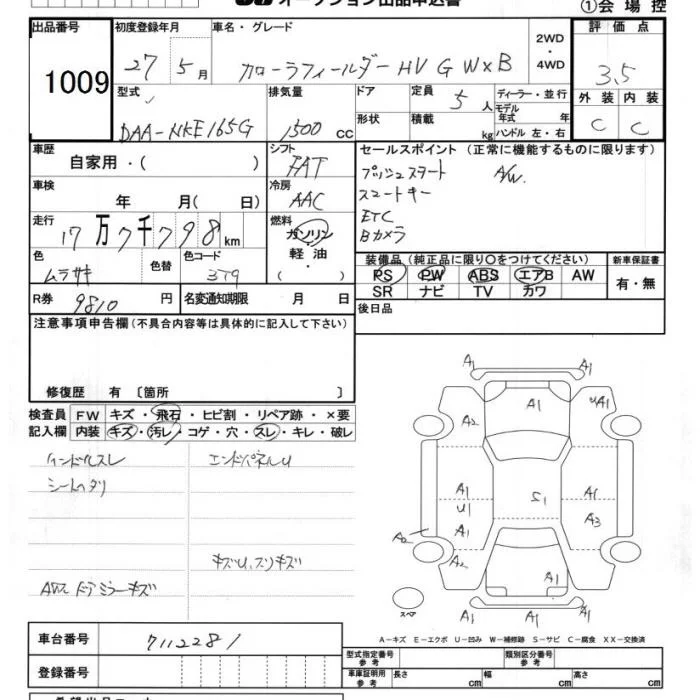 オークション出品申込書
①会場控
出品番号 初度登録年月 車名・グレード 2WD ・ 4WD 評価点
1009 27年 5月 カローラフィールダー HV G W×B 3.5
型式 排気量 ドア 定員 5人 ディーラー・並行 外装 内装
DAA-NKE165G 1500 CC 形状 積載 kg モデル年式 年 ハンドル 左・右 C C
車歴 自家用・( ) シフト FAT セールスポイント (正常に機能するものに限ります)
プッシュスタート A/W.
車検 年 月( 日) 冷房 AAC スマートキー
ETC
走行 17万7千798km 燃料 ガソリン 軽油 ( ) Bカメラ
色 ムラサキ 色替 色コード 3T9 装備品 (純正品に限り○をつけてください) 新車保証書
PS PW ABS エアB AW 有・無
SR ナビ TV カワ
R券 9810円 名変通知期限 月 日 後日品
注意事項申告欄 (不具合内容等は具体的に記入して下さい)
修復歴 有 〔箇所 〕
検査員 FW キズ・飛石・ヒビ割・リペア跡・×要
記入欄 内装 キズ・汚レ・コゲ・穴・スレ・キレ・破レ
ハンドルスレ エンドパネルU
キズU.スリキズ
ドアミラーキズ
A1 A1
A1 UA1
A2
A1 U1 S1 A1
A1 A3
A2
A2 A1
スペア A1 A1
A-キズ E-エクボ U-凹み W-補修跡 S-サビ C-腐食 XX-交換済
車台番号 7112281
型式指定番号 参考 類別区分番号 参考
登録番号 車庫証明用 参考 長さ cm 幅 cm 高さ cm